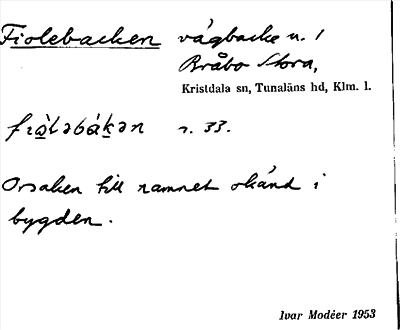 Fiolebacken vägbacke n. /
Bråbo Stora,
Kristdala sn, Tunaläns hd, Klm. l.
r. 33.
Orsaken till namnet okänd i
bygden.
Ivar Modéer 1953